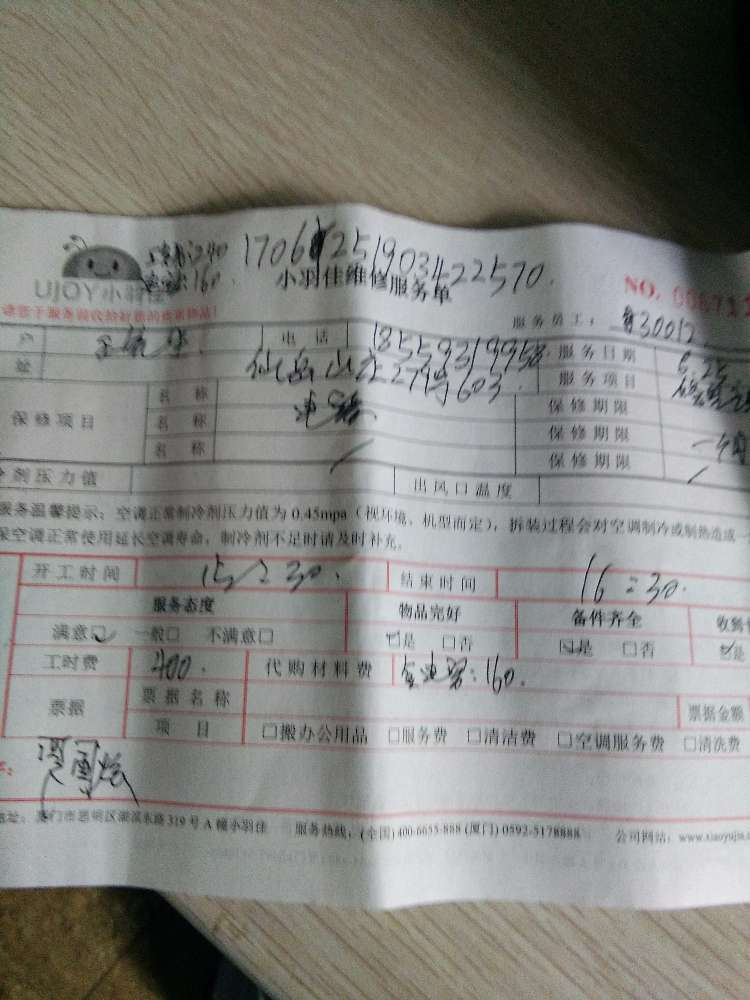 240 17061251903422570.
UJOY小羽佳 160. 小羽佳维修服务单 NO.
服务员工: 30012
户 电话 18559319958 服务日期 6.25
址 仙岳山庄27号603 服务项目
保修项目 名称 保修期限
名称 保修期限
名称 保修期限
剂压力值 出风口温度
服务温馨提示:空调正常制冷剂压力值为0.45mpa(视环境、机型而定),拆装过程会对空调制冷或制热造成一
保空调正常使用延长空调寿命,制冷剂不足时请及时补充。
开工时间 15:30. 结束时间 16:30.
服务态度 物品完好 备件齐全 收到
满意☑ 一般□ 不满意□ ☑是 □否 ☑是 □否 ☑是
工时费 400. 代购材料费 :160.
票据 票据名称 票据金额
项目 □搬办公用品 □服务费 □清洁费 □空调服务费 □清洗费
地址:厦门市思明区湖滨东路319号A幢小羽佳 服务热线:(全国)400-6655-888(厦门)0592-5178888 公司网站:www.xiaoyujia